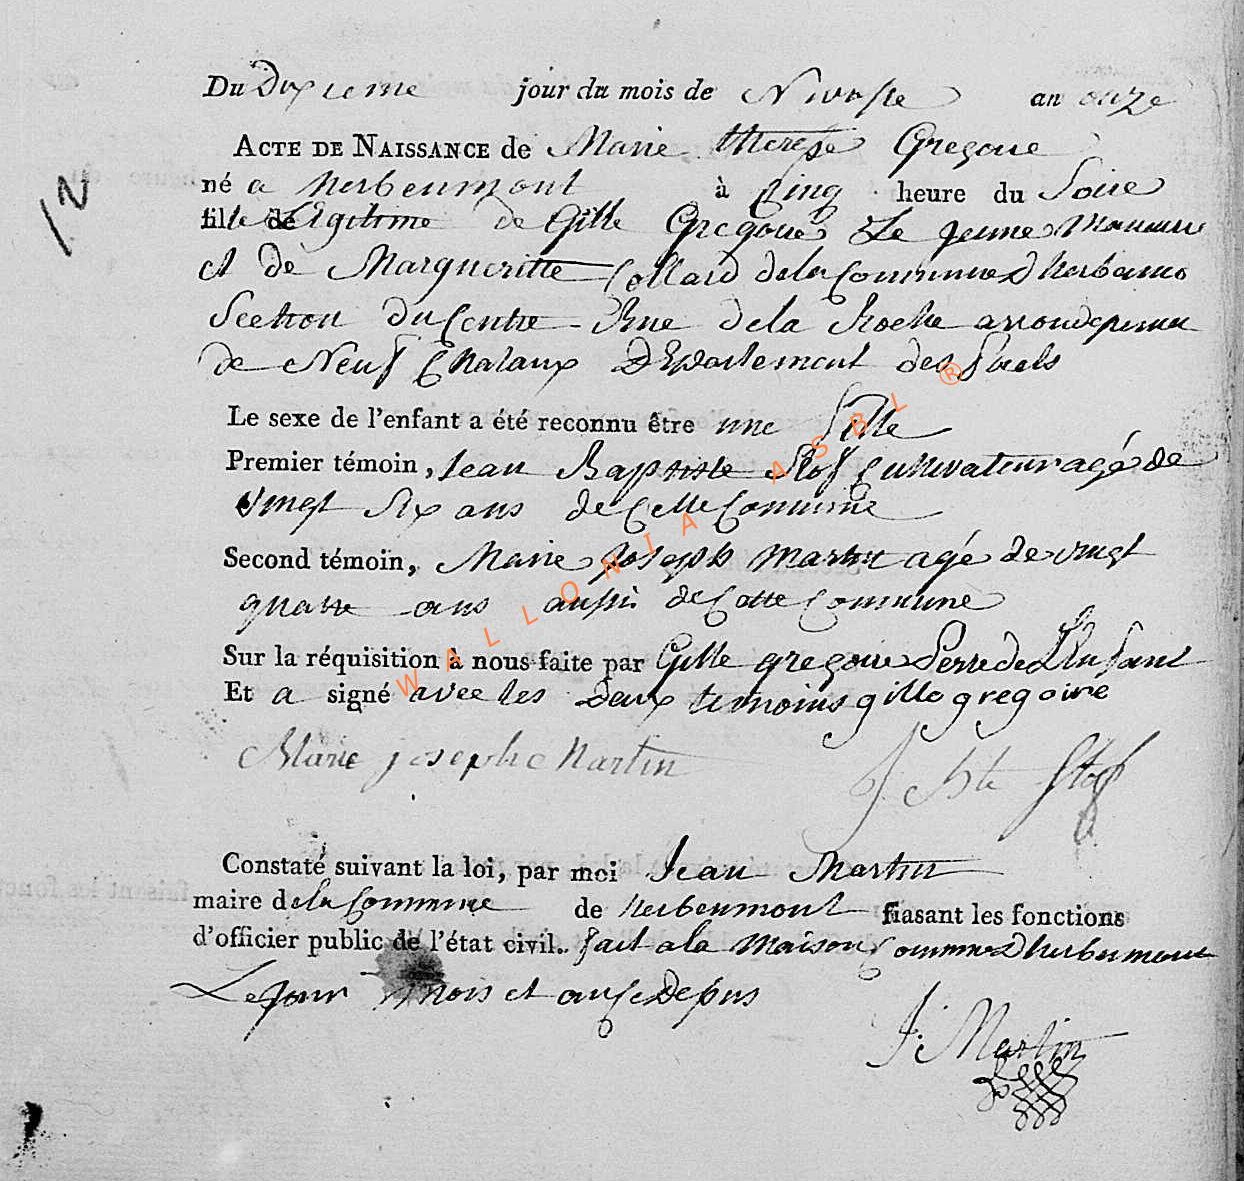 12
Du Dixieme jour du mois de Nivose an onze
ACTE DE NAISSANCE de Marie therese Gregoire
né a herbeumont à Cinq heure du Soire
fille de Legitime de Gille Gregoire Le jeune
et de Margueritte Collard de la Commune
Section du Centre Rue de la Roche
de Neuf Chataux Departement des
Le sexe de l'enfant a été reconnu être une fille
Premier témoin, Jean Baptiste Stof Cultivateur agé de
vingt Six ans de Cette Commune
Second témoin, Marie Joseph Martin agé de vingt
quatre ans aussi de Cette Commune
Sur la réquisition à nous faite par Gille gregoire Perre de L'Enfant
Et a signé avec les Deux temoins gille gregoire
Marie joseph Martin
J. Bte Stof
Constaté suivant la loi, par moi Jean Martin
maire de la Commune de herbeumont fiasant les fonctions
d'officier public de l'état civil. fait a la Maison Commune Dherbeumont
Le jour mois et an
J: Martin
WALLONIA ASBL ®